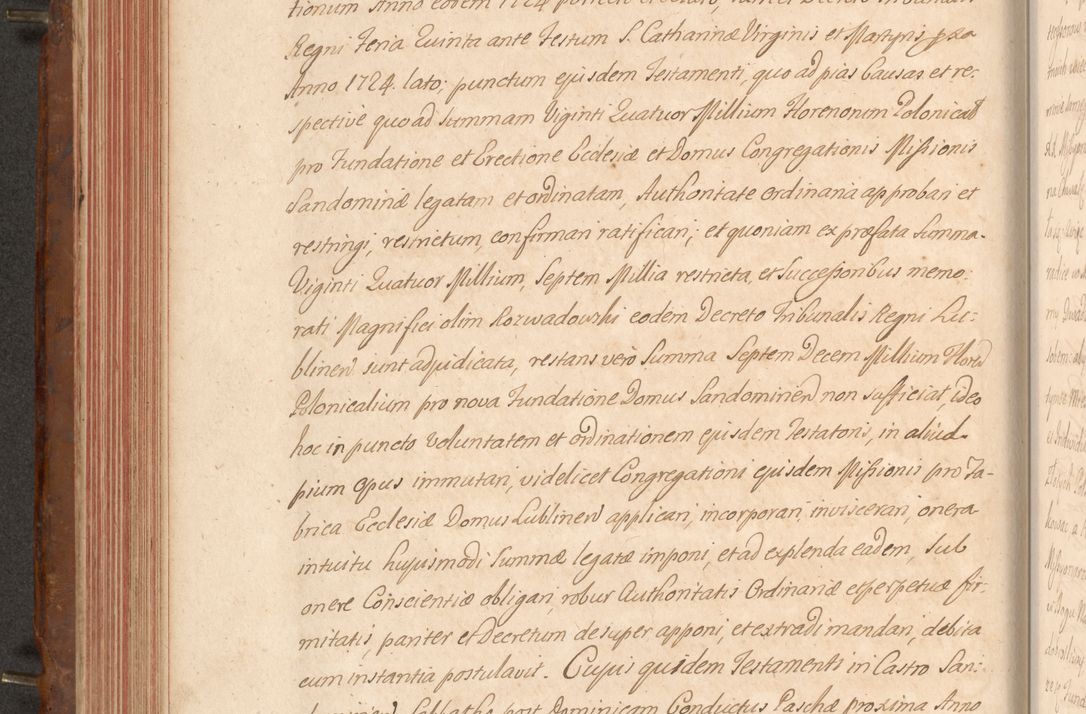 tionum Anno eodem 1724
Regni Feria Quinta ante Festum S. Catharinæ Virginis et Martyris pxa
Anno 1724. lato; punctum ejusdem Testamenti, quo ad pias Causas et re-
spective quo ad Summam Viginti Quatuor Millium Florenorum Polonical
pro Fundatione et Erectione Ecclesiæ et Domus Congregationis Missionis
Sandomiriæ legatam et ordinatam, Authoritate Ordinaria approbari et
restringi, restrictum, confirmari ratificari; et quoniam ex præfata Summa
Viginti Quatuor Millium, Septem Millia restricta, et Successoribus memo:
rati Magnifici olim Rozwadowski eodem Decreto Tribunalis Regni Lu-
blinen sunt adjudicata, restans vero Summa Septem Decem Millium Floren
Polonicalium pro nova Fundatione Domus Sandomirien non sufficiat, ideo
hoc in puncto Voluntatem et ordinationem ejusdem Testatoris, in aliud
pium opus immutari, videlicet Congregationi ejusdem Missionis pro Fa-
brica Ecclesiæ Domus Lublinen applicari, incorporari, inviscerari, onera
intuitu hujusmodi Summæ legatæ imponi, et ad explenda eadem, sub
onere Conscientiæ obligari, robur Authoritatis Ordinariæ et perpetuæ fir-
mitatis, pariter et Decretum desuper apponi, et extradi mandari, debita
cum instantia postulavit. Cujus quidem Testamenti in Castro San-
Sabbatho post Dominicam Conductus Paschæ proxima Anno